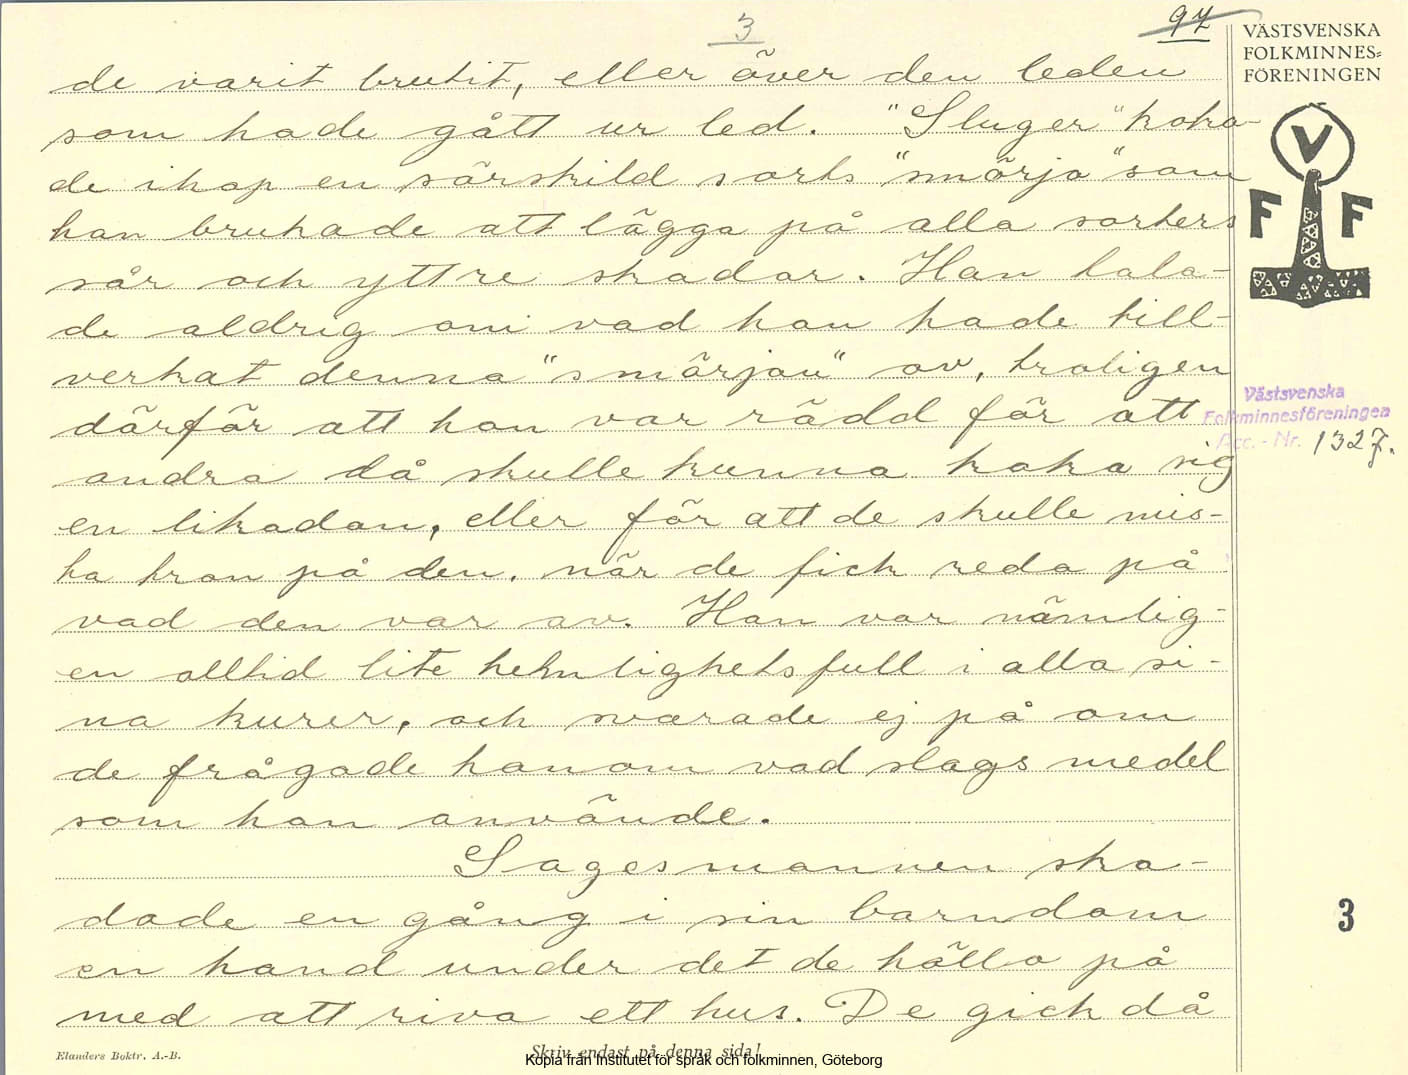 3
97
VÄSTSVENSKA
FOLKMINNES=
FÖRENINGEN
de varit brutit, eller över den leden
som hade gått ur led. "Sluger" koka-
de ihop en särskild sorts "smörja" som
han brukade att lägga på alla sorters
sår och yttre skador. Han tala-
de aldrig om vad han hade till-
verkat denna "smörjan" av, troligen
därför att han var rädd för att
andra då skulle kunna koka sig
en likadan, eller för att de skulle mis-
ta tron på den, när de fick reda på
vad den var av. Han var nämlig-
en alltid lite hemlighetsfull i alla si-
na kurer, och svarade ej på om
de frågade honom vad slags medel
som han använde.
Sagesmannen ska-
dade en gång i sin barndom
en hand under det de hållo på
med att riva ett hus. De gick då
V
F F
Västsvenska
Folkminnesföreningen
Acc. - Nr. 1327.
3
Elanders Boktr. A.-B.
Skriv endast på denna sida!
Kopia från Institutet för språk och folkminnen, Göteborg